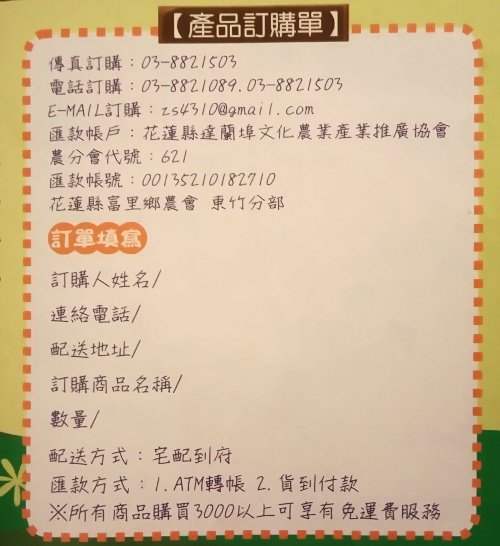 【產品訂購單】
傳真訂購：03-8821503
電話訂購：03-8821089.03-8821503
E-MAIL訂購：zs4310@gmail.com
匯款帳戶：花蓮縣達蘭埠文化農業產業推廣協會
農分會代號：621
匯款帳號：00135210182710
花蓮縣富里鄉農會 東竹分部
訂單填寫
訂購人姓名/
連絡電話/
配送地址/
訂購商品名稱/
數量/
配送方式：宅配到府
匯款方式：1. ATM轉帳 2. 貨到付款
※所有商品購買3000以上可享有免運費服務